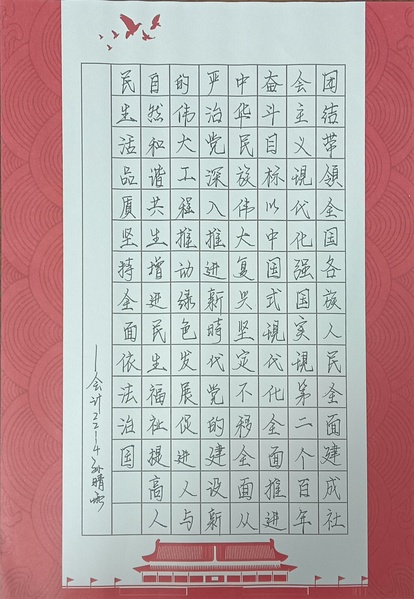 团结带領全国各族人民全面建成社
会主义現代化强国实現第二个百年
奋斗目标以中国式現代化全面推进
中华民族伟大复兴坚定不移全面从
严治党深入推进新時代党的建设新
的伟大工程推动绿色发展促进人与
自然和谐共生增进民生福祉提高人
民生活品质坚持全面依法治国
—会计2214孙晴